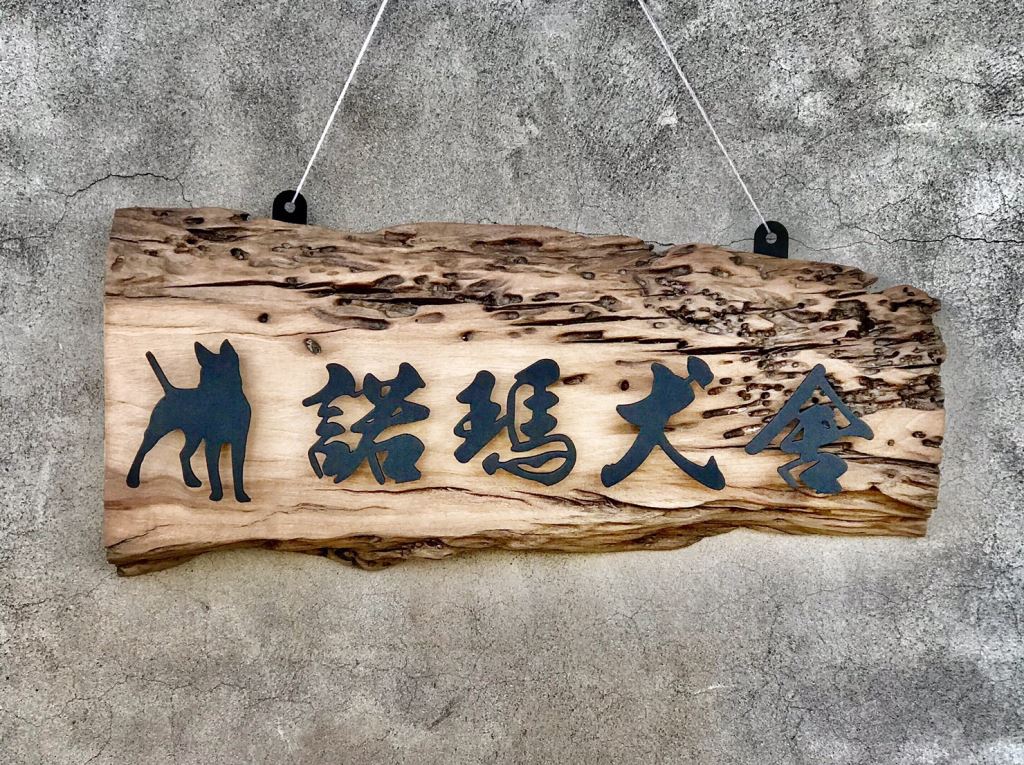 諾瑪犬舍